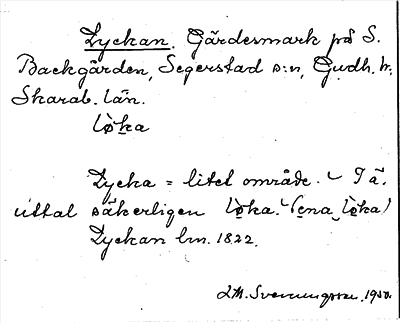 Lyckan. Gärdesmark på S.
Backgården, Segerstad s:n, Gudh. h.
Skarab. län.
lø̱ka
Lycka = litet område. I ä.
uttal säkerligen lø̱ka. (e̱na lø̱ka)
Lyckan lm. 1822.
1950.